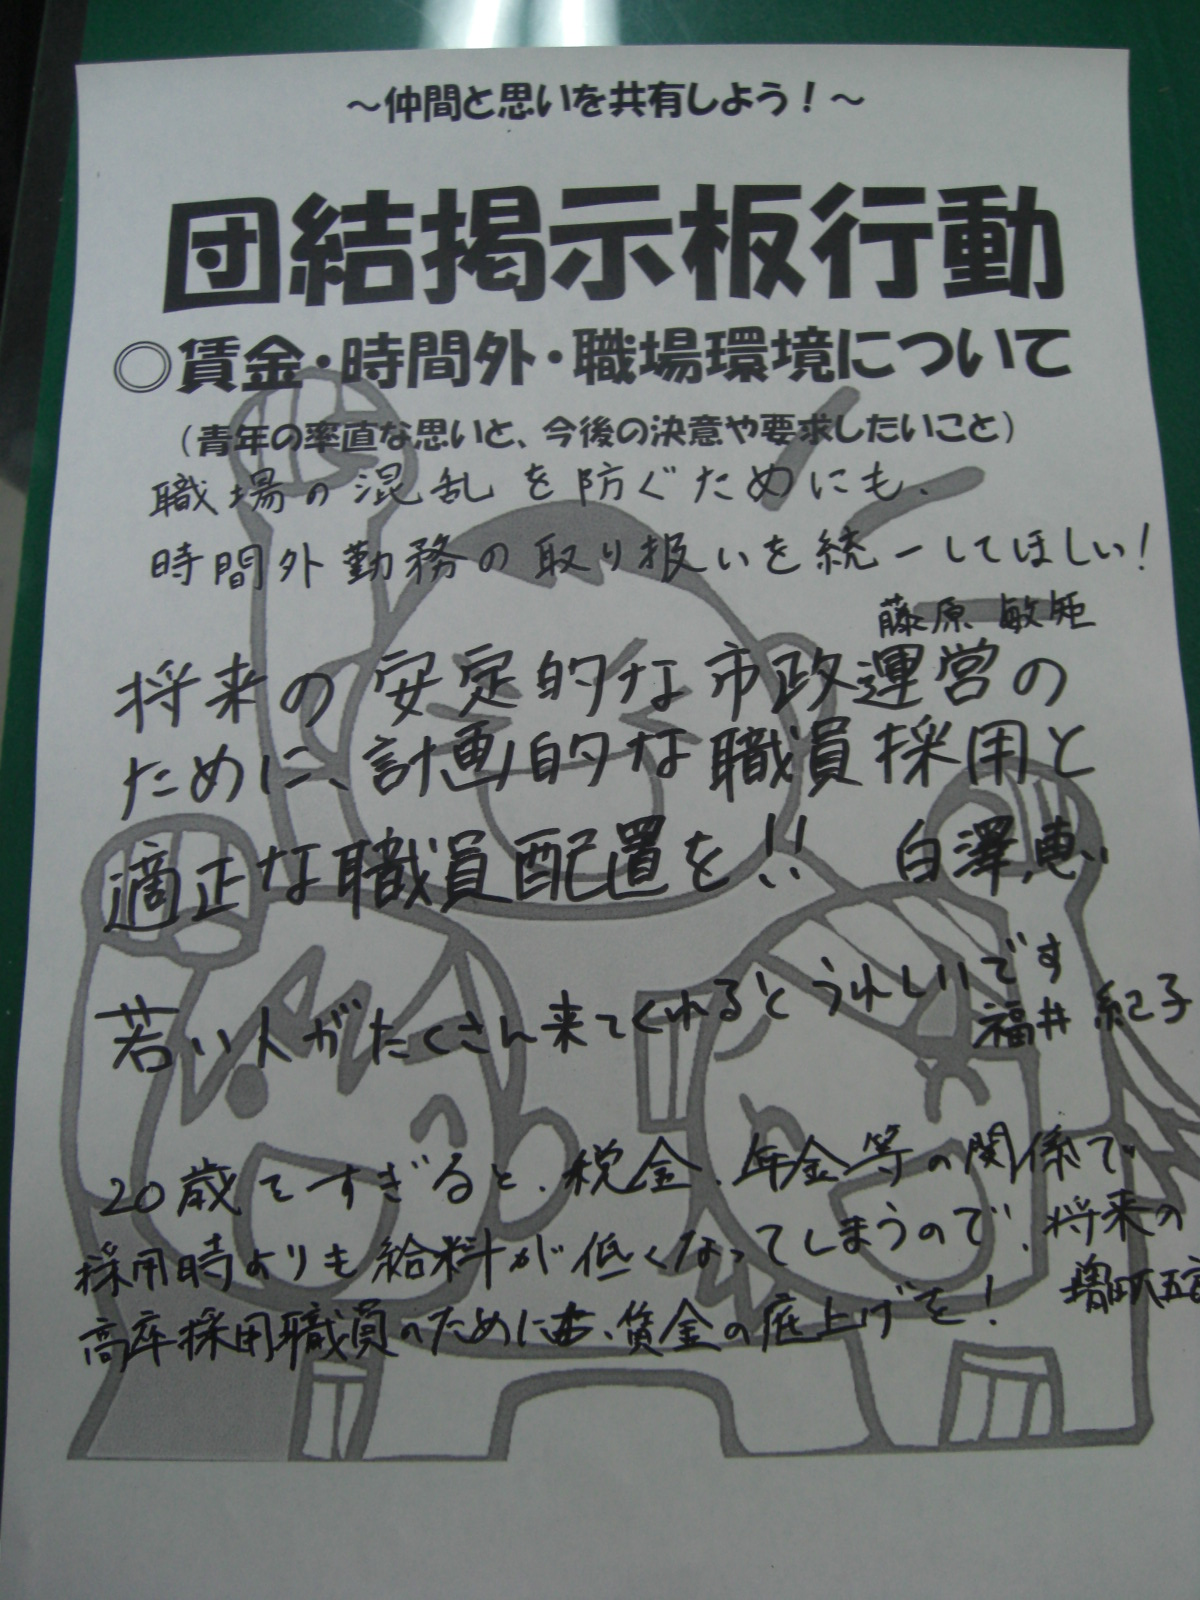 ～仲間と思いを共有しよう！～
団結掲示板行動
◎賃金・時間外・職場環境について
（青年の率直な思いと、今後の決意や要求したいこと）
職場の混乱を防ぐためにも、
時間外勤務の取り扱いを統一してほしい！
藤原 敏矩
将来の安定的な市政運営の
ために、計画的な職員採用と
適正な職員配置を!! 白澤 恵
若い人がたくさん来てくれるとうれしいです
福井 紀子
20歳をすぎると、税金、年金等の関係で
採用時よりも給料が低くなってしまうので、将来の
高卒採用職員のために、賃金の底上げを！